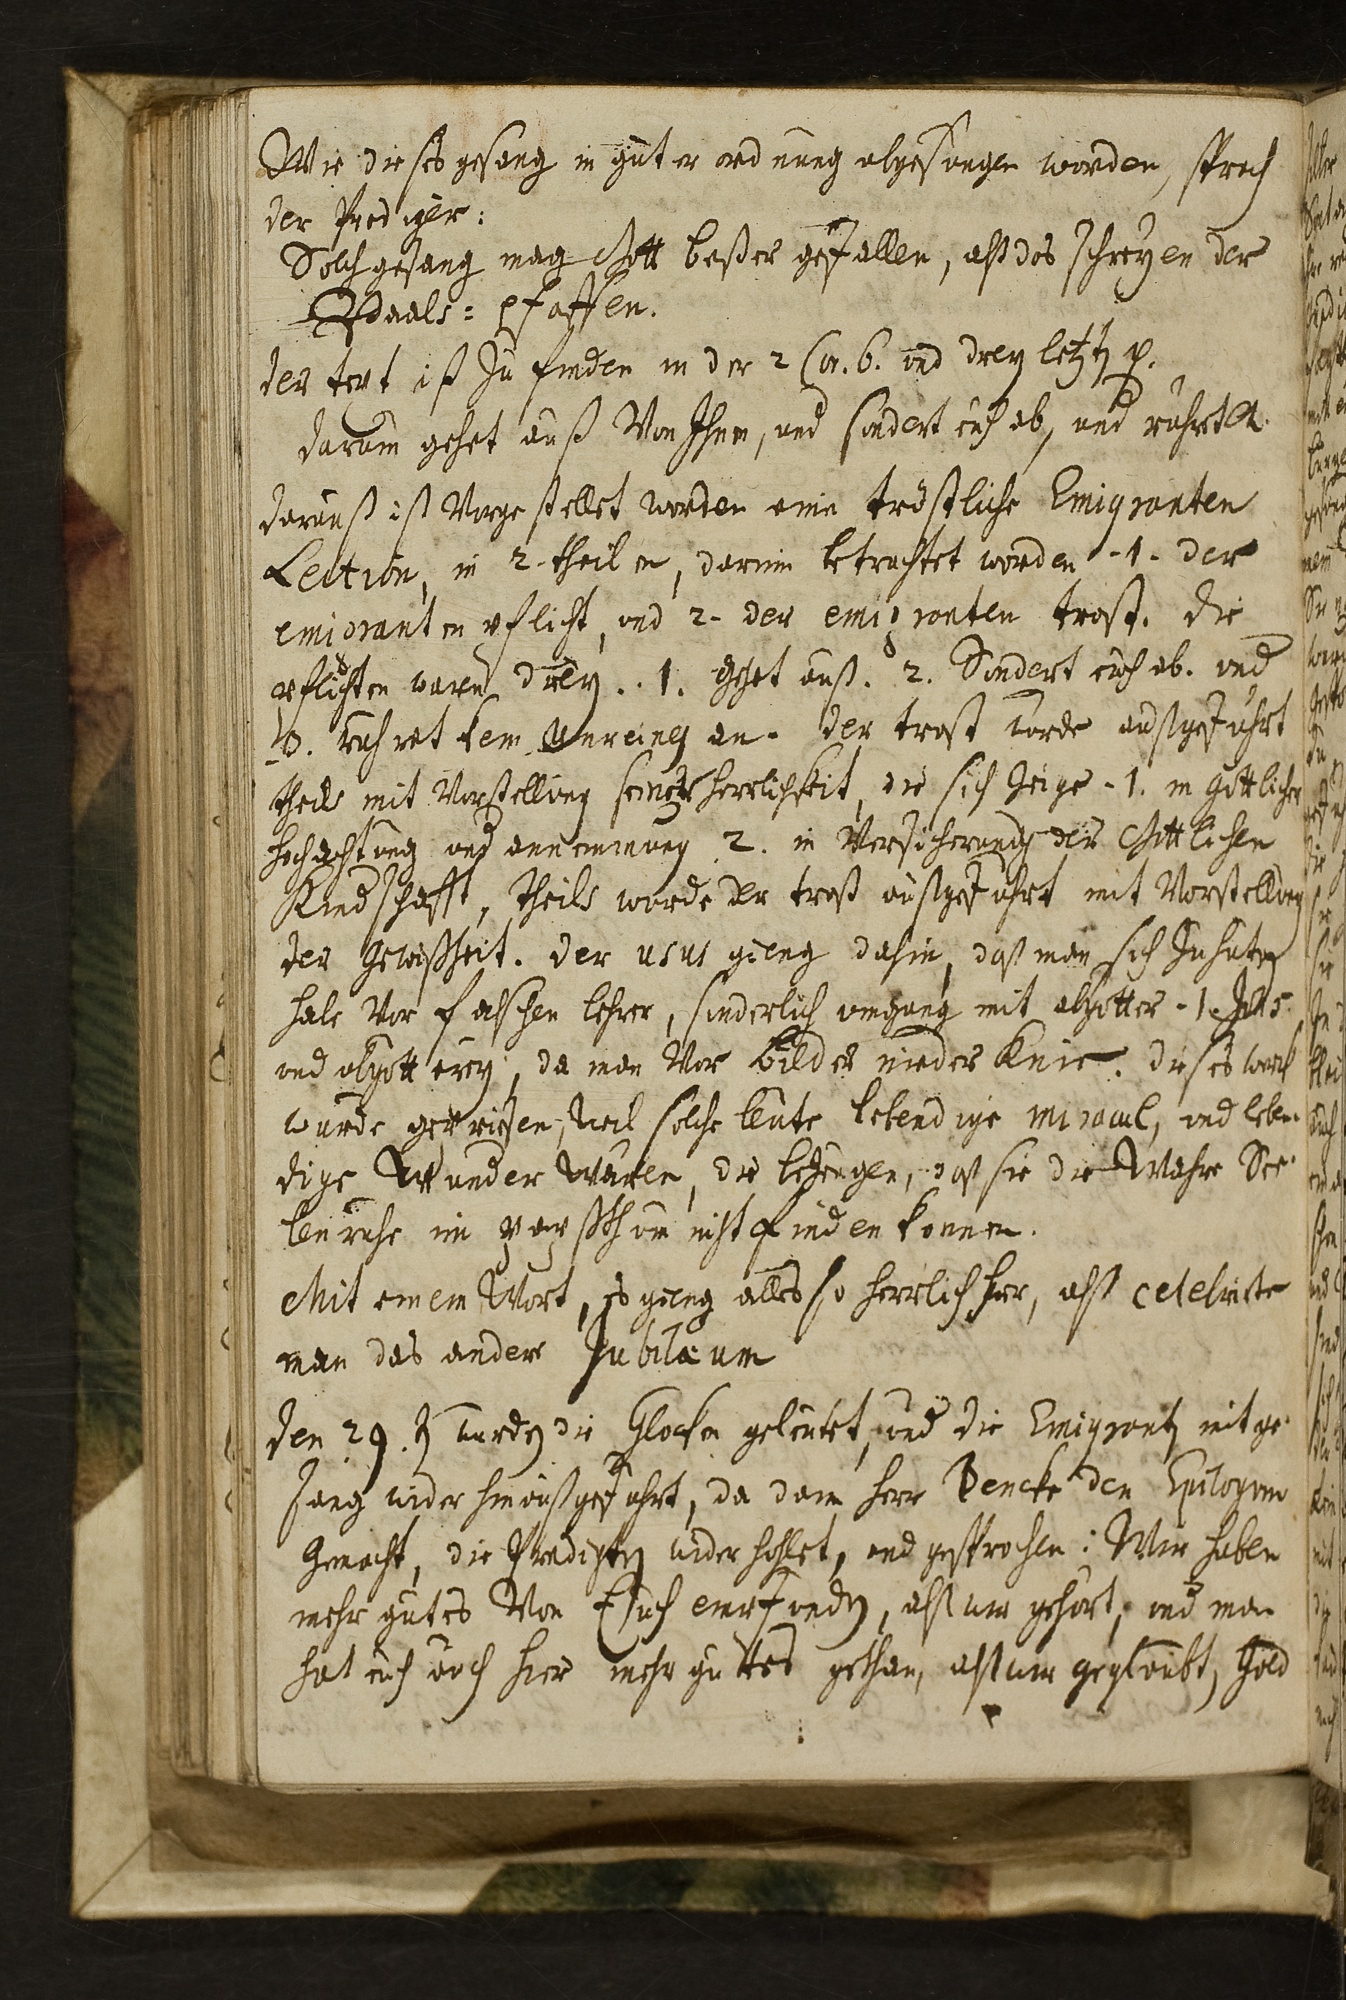 Wie dieses gesang in guter ordnung abgesungen worden, sprach
der Prediger:
Solch gesang mag Gott beßer gefallen, alß das schreyen der
Baals= pfaffen.
der text ist zu finden in der 2 Cor. 6. und drey letzt
darum gehet auß Von Ihnen, und sondert euch ab, und rühret
darauß ist Vorgestellet worden eine tröstliche Emigranten
Lection, in 2- theilen, darinn betrachtet worden - 1 - der
emigranten pflicht, und 2- der emigranten trost. die
pflichten waren drey.. 1. Gehet auß. 2. Sondert euch ab. und
3. rühret kein Unreines an. der trost wurde außgeführt
theils mit Vorstellung seiner herrlichkeit, die sich zeige - 1. in göttlicher
hochachtung und annemmung 2. in Versicherung der Göttlichen
Kindschafft, theils wurde der trost außgeführt mit Vorstellung
der Gewißheit. der usus gieng dahin, daß man sich zu hüten
habe Vor falschen lehrer, sonderlich umgang mit abgötter - 1. Joh 5.
und abgötterey, da man Vor bilder nieder knie. dieses werk
wurde gepriesen, weil solche leute lebendige miracul, und leben-
dige Wunder wären, die bezeugen, daß sie die Wahre See-
lenruhe im pabstthum nicht finden konnen.
Mit einem Wort, es gieng alles so herrlich her, alß celebrirte
man das andere Jubilæum
den 29. wurden die Glocken geleutet, und die Emigranten mit ge-
sang wider hinaußgeführt, da dann herr Bencke den Epilogum
Gemacht, die Predigten widerhohlet, und gesprochen: Wir haben
mehr gutes Von Euch empfunden, alß wir gehört, und man
hat euch auch hier mehr guttes gethan, alß wir geglaubt, Gold